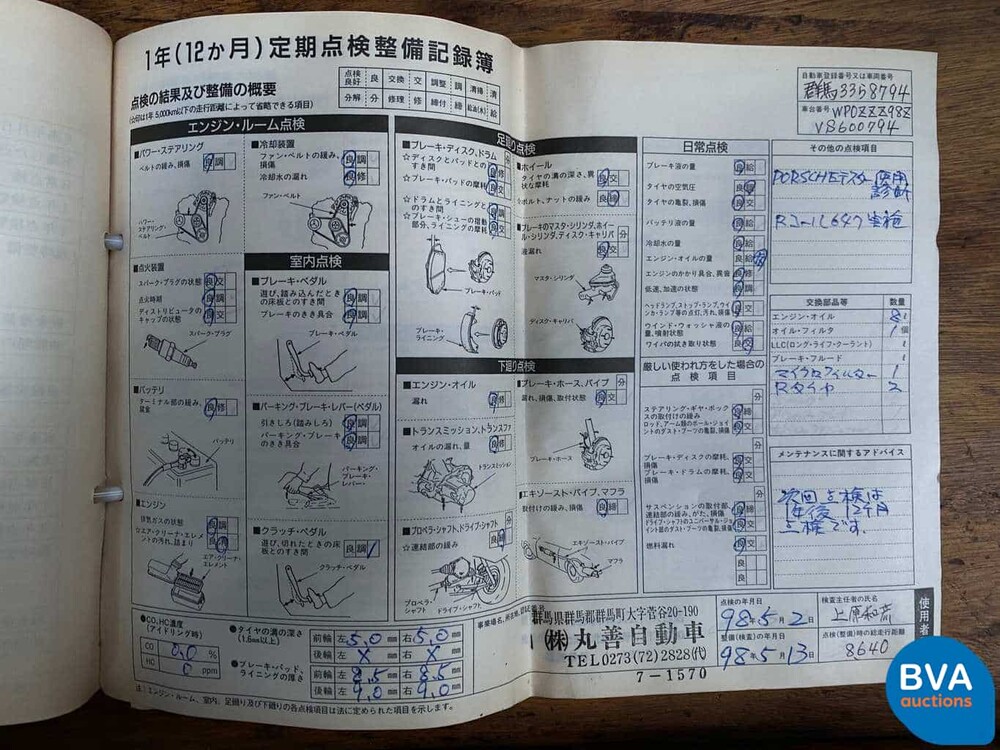 1年(12か月)定期点検整備記録簿
点検の結果及び整備の概要
(☆印は1年5,000km以下の走行距離によって省略できる項目)
点検良好 良 交換 交 調整 調 清掃 清
分解 分 修理 修 締付 締 給油(水) 給
エンジン・ルーム点検
■パワー・ステアリング
ベルトの緩み、損傷
良 調
パワー・ステアリング・ベルト
■点火装置
スパーク・プラグの状態
良 交
点火時期
良 調
ディストリビュータのキャップの状態
良 交
スパーク・プラグ
■バッテリ
ターミナル部の緩み、腐食
良 修
バッテリ
■エンジン
排気ガスの状態
良 調
☆エア・クリーナ・エレメントの汚れ、詰まり
良 清
エア・クリーナ・エレメント
■冷却装置
ファン・ベルトの緩み、損傷
良 調
冷却水の漏れ
良 修
ファン・ベルト
室内点検
■ブレーキ・ペダル
遊び、踏み込んだときの床板とのすき間
良 調
ブレーキのきき具合
良 調
ブレーキ・ペダル
■パーキング・ブレーキ・レバー(ペダル)
引きしろ(踏みしろ)
良 調
パーキング・ブレーキのきき具合
良 調
パーキング・ブレーキ・レバー
■クラッチ・ペダル
遊び、切れたときの床板とのすき間
良 調
クラッチ・ペダル
足廻り点検
■ブレーキ・ディスク、ドラム
分
☆ディスクとパッドとのすき間
良 修
☆ブレーキ・パッドの摩耗
良 交
☆ドラムとライニングとのすき間
良 修
☆ブレーキ・シューの摺動部分、ライニングの摩耗
良 交
ブレーキ・パッド
ブレーキ・ライニング
■ホイール
タイヤの溝の深さ、異状な摩耗
良 交
☆ボルト、ナットの緩み
良 締
■ブレーキのマスタ・シリンダ、ホイール・シリンダ、ディスク・キャリパ
分
液漏れ
良 交
マスタ・シリンダ
ディスク・キャリパ
下廻り点検
■エンジン・オイル
漏れ
良 修
■トランスミッション、トランスファ
オイルの漏れ、量
良
トランスミッション
■プロペラ・シャフト、ドライブ・シャフト
分
☆連結部の緩み
良 締
プロペラ・シャフト
ドライブ・シャフト
■ブレーキ・ホース、パイプ
分
漏れ、損傷、取付状態
良 交
ブレーキ・ホース
■エキゾースト・パイプ、マフラ
取付けの緩み、損傷
良 締
エキゾースト・パイプ
マフラ
日常点検
ブレーキ液の量
良 給
タイヤの空気圧
良
タイヤの亀裂、損傷
良 交
バッテリ液の量
良 給
冷却水の量
良 給
エンジン・オイルの量
良 給
エンジンのかかり具合、異音
良 修
低速、加速の状態
良 調
ヘッドランプ、ストップ・ランプ、ウインカ・ランプ等の点灯、汚れ、損傷
良 交
ウインド・ウォッシャ液の量、噴射状態
良 給
ワイパの拭き取り状態
良 交
厳しい使われ方をした場合の点検項目
分
ステアリング・ギヤ・ボックスの取付けの緩み
良 締
ロッド、アーム類のボール・ジョイントのダスト・ブーツの亀裂、損傷
良 交
分
ブレーキ・ディスクの摩耗、損傷
良 交
ブレーキ・ドラムの摩耗、損傷
良 交
分
サスペンションの取付部、連結部の緩み、がた、損傷
良 締
ドライブ・シャフトのユニバーサル・ジョイント部のダスト・ブーツの亀裂、損傷
良 交
燃料漏れ
良 交
良
良
自動車登録番号又は車両番号
群馬3358794
車台番号
WP0ZZZ98Z
VS600794
その他の点検項目
PORSCHEテスター 使用
診断
交換部品等 数量
エンジン・オイル 8 ℓ
オイル・フィルタ 1 個
LLC(ロング・ライフ・クーラント) ℓ
ブレーキ・フルード ℓ
マイクロフィルター 1
Rタイヤ 2
メンテナンスに関するアドバイス
次回点検は
12ケ月
点検です。
●CO、HC濃度(アイドリング時)
CO 0.0 %
HC 0 ppm
●タイヤの溝の深さ(1.6mm以上)
前輪 左 5.0 mm 右 5.0 mm
後輪 左 X mm 右 X mm
●ブレーキ・パッド、ライニングの厚さ
前輪 左 8.5 mm 右 8.5 mm
後輪 左 9.0 mm 右 9.0 mm
注:エンジン・ルーム、室内、足廻り及び下廻りの各点検項目は法に定められた項目を示します。
群馬県群馬郡群馬町大字菅谷20-190
(株)丸善自動車
TEL0273(72)2828(代)
7-1570
点検の年月日
98年5月2日
整備(検査)の年月日
98年5月13日
検査主任者の氏名
上原和彦
点検(整備)時の総走行距離
8640
使用者
BVA
auctions